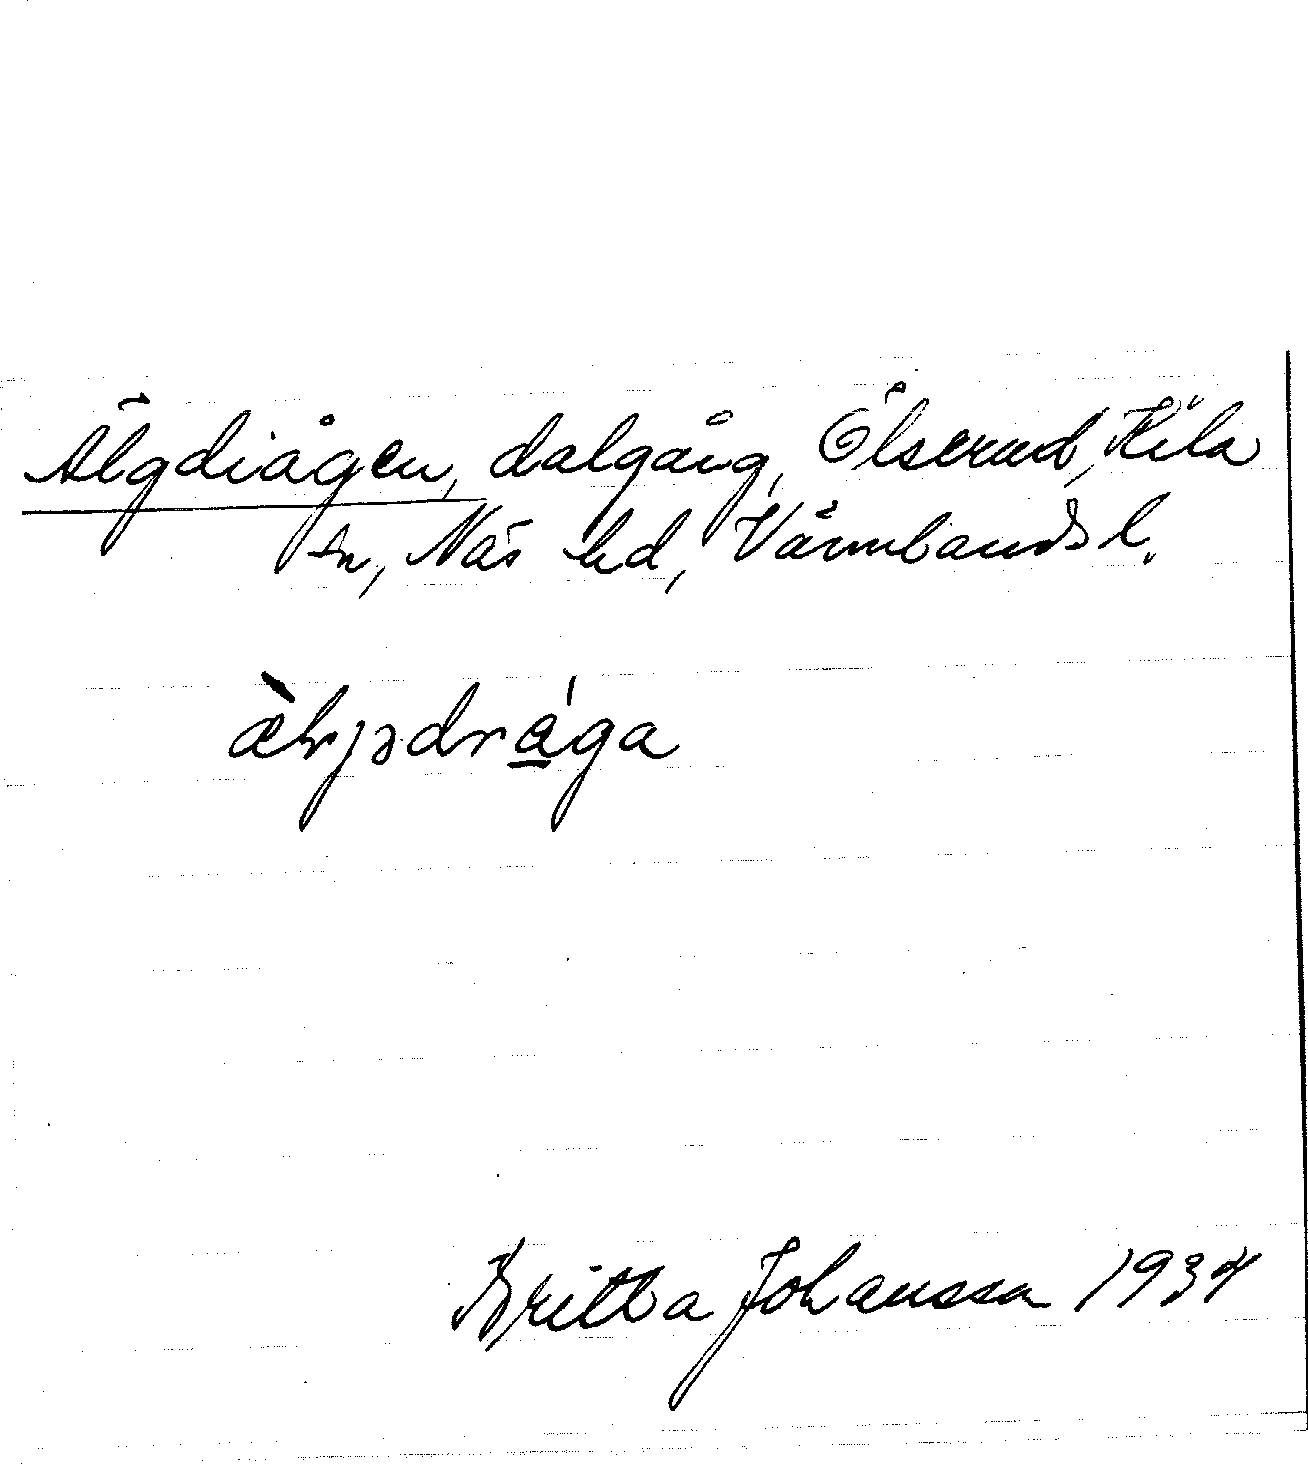 Älgdrågen, dalgång, Ölserud, Kila
sn, Näs hd, Värmlands l.
Britta Johansson 1934